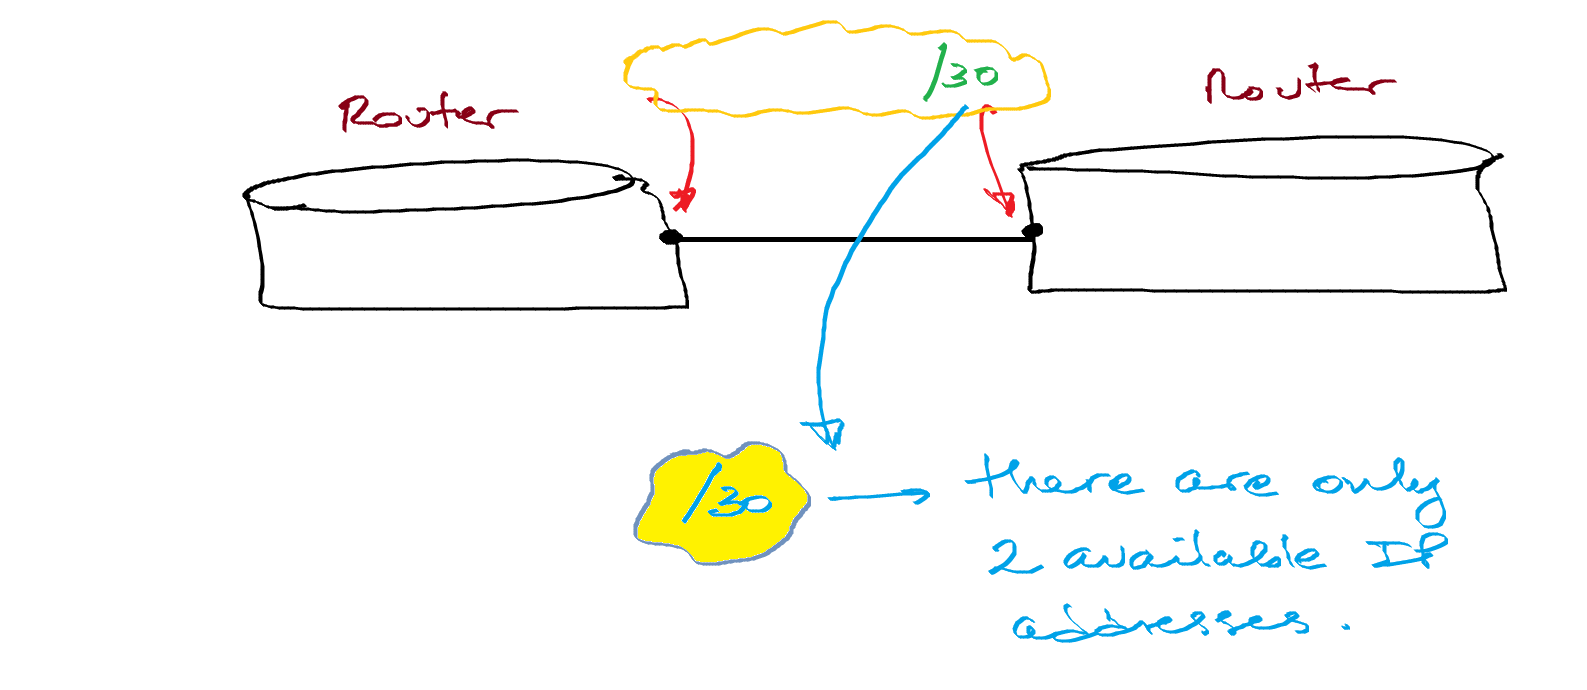 /30
Router
Router
/30
there are only
2 available IP
addresses.